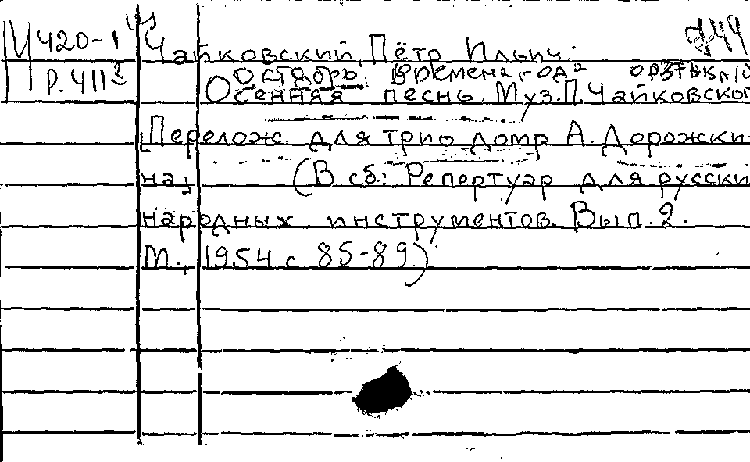 Ч 420-1
П Р.411³
Чайковский, Пётр Ильич.
Октябрь. Времена года
Осенняя песнь. Муз. П. Чайковско
Перелож. для трио домр А. Дорожки-
на, (В сб: Репертуар для русски
народных инструментов. Вып. 2.
М., 1954 с. 85-89.)